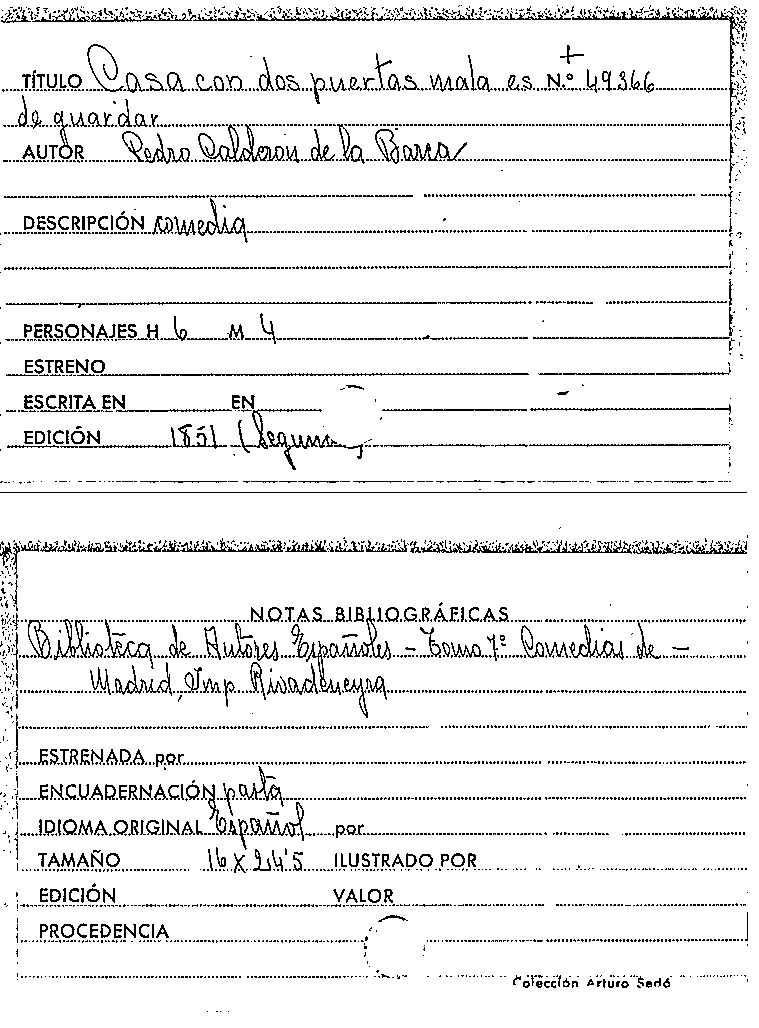 TÍTULO Casa con dos puertas mala es N.º 49366
de guardar
AUTOR Pedro Calderon de la Barca
DESCRIPCIÓN comedia
PERSONAJES H 6 M 4
ESTRENO
ESCRITA EN EN
EDICIÓN 1851 (Segun
NOTAS BIBLIOGRÁFICAS
Biblioteca de Autores Españoles - Tomo 7º Comedias de -
Madrid, Imp. Rivadeneyra
ESTRENADA por
ENCUADERNACIÓN pasta
IDIOMA ORIGINAL Español por
TAMAÑO 16 X 24'5 ILUSTRADO POR
EDICIÓN VALOR
PROCEDENCIA
Colección Arturo Sedó